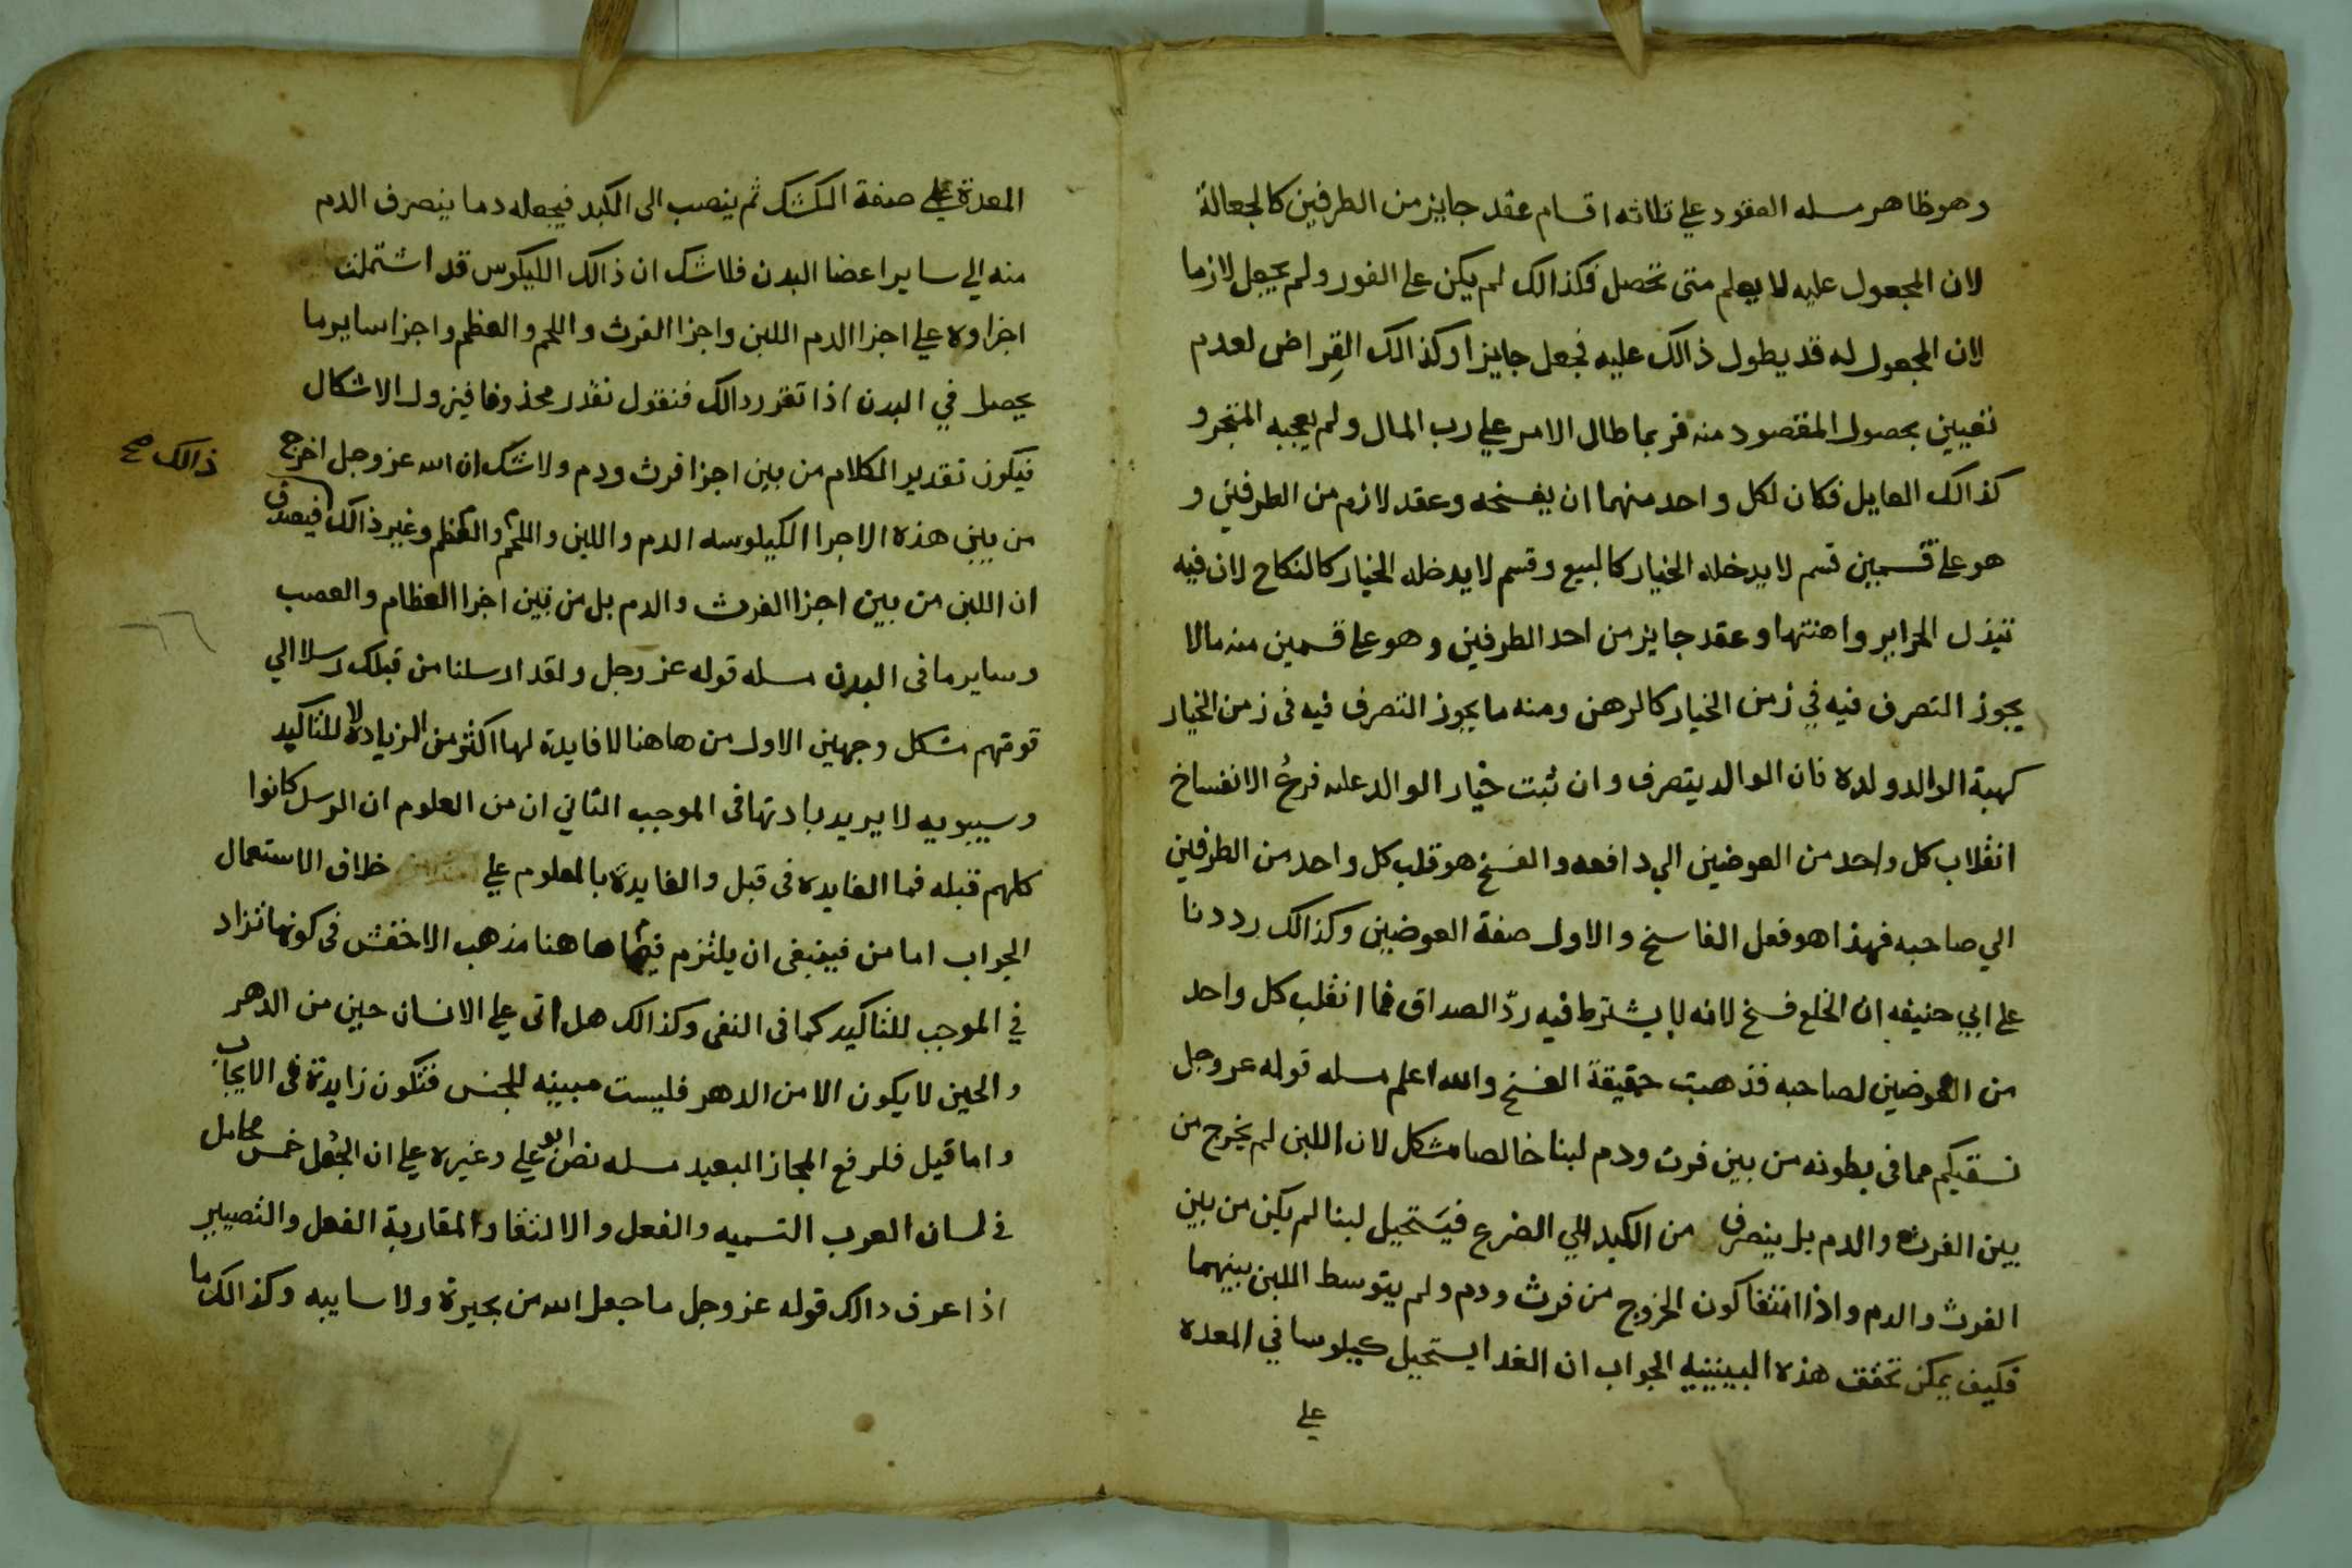 وهو ظاهر مسله العقود علي ثلاثه اقسام عقد جايز من الطرفين كالجعالة
لان المجعول عليه لا يعلم متى تحصل فكذالك لم يكن على الفور ولم يجعل لازما
لان المجعول له قد يطول ذالك عليه فجعل جايزا وكذالك القِراض لعدم
تعيين بحصول المقصود منه فربما طال الامر علي رب المال ولم يعجبه المتجر و
كذالك العايل فكان لكل واحد منهما ان يفسخه وعقد لازم من الطرفين و
هو على قسمين قسم لا يدخله الخيار كالبيع وقسم لا يدخله الخيار كالنكاح لان فيه
تبذل الحراير واهنتها وعقد جايز من احد الطرفين وهو على قسمين منه مالا
يجوز التصرف فيه في زمن الخيار كالرهن ومنه ما يجوز التصرف فيه فى زمن الخيار
كهبة الوالد ولده فان الوالد يتصرف وان ثبت خيار الوالد عليه فرعُ الانفساخ
انقلاب كل واحد من العوضين الي دافعه والفسخ هو قلب كل واحد من الطرفين
الي صاحبه فهذا هو فعل الفاسخ والاول صفة العوضين وكذالك رددنا
على ابي حنيفه ان الخلع فسخ لانه لا يشترط فيه ردّ الصداق فما انقلب كل واحد
من العوضين لصاحبه فذهبت حقيقة الفسخ والله اعلم مسله قوله عز وجل
نسقيكم مما فى بطونه من بين فرث ودم لبنا خالصا مشكل لان اللبن لم يخرج من
بين الفرث والدم بل ينصرف من الكبد الي الضرع فيَستحيل لبنا لم يكن من بين
الفرث والدم واذا انتفا كون الخروج من فرث ودم ولم يتوسط اللبن بينهما
فكيف يمكن تحقق هذه البينيه الجواب ان الغدا يستحيل كيلوسا في المعده
علي
المعدة علي صفة الكشك ثم ينصب الى الكبد فيجعله دما ينصرف الدم
منه الي ساير اعضا البدن فلا شك ان ذالك الليكوس قد اشتملت
اجزاوه علي اجزا الدم اللبن واجزا الفرث واللحم والعظم واجزا ساير ما
يحصل في البدن اذا تقرر دالك فنقول نقدر محذوفا فيزول الاشكال
فيكون تقدير الكلام من بين اجزا فرث ودم ولا شك ان الله عز وجل اخرج
ذالك صح
من بين هذه الاجرا الكيلوسه الدم واللبن واللحم والعظم وغير ذالك فيصدق
ان اللبن من بين اجزا الفرث والدم بل من بين اجزا العظام والعصب
وساير ما فى البدن مسله قوله عز وجل ولقد ارسلنا من قبلك رسلا الي
قومهم مشكل وجهين الاول من هاهنا لا فايدة لها اكثر من الزيادة لا للتاكيد
وسيبويه لا يريد بادتها فى الموجب الثاني ان من العلوم ان الرسل كانوا
كلهم قبله فما الفايده فى قبل والفايدة بالمعلوم علي خلاف الاستعمال
الجواب اما من فينبغى ان يلتزم فيها هاهنا مذهب الاخفش فى كونها تزاد
في الموجب للتاكيد كما فى النفى وكذالك هل اتى علي الانسان حين من الدهر
والحين لا يكون الا من الدهر فليست مبينه للجنس فتكون زايدة فى الايجاب
واما قيل فلرفع المجاز البعيد مسله نص ابو علي وغيره علي ان الجُعل خمس محامل
في لسان العرب التسميه والفعل والالتقا والمقاربة الفعل والتصيير
اذا عرف دالك قوله عز وجل ما جعل الله من بحيرة ولا سايبه وكذالك ما